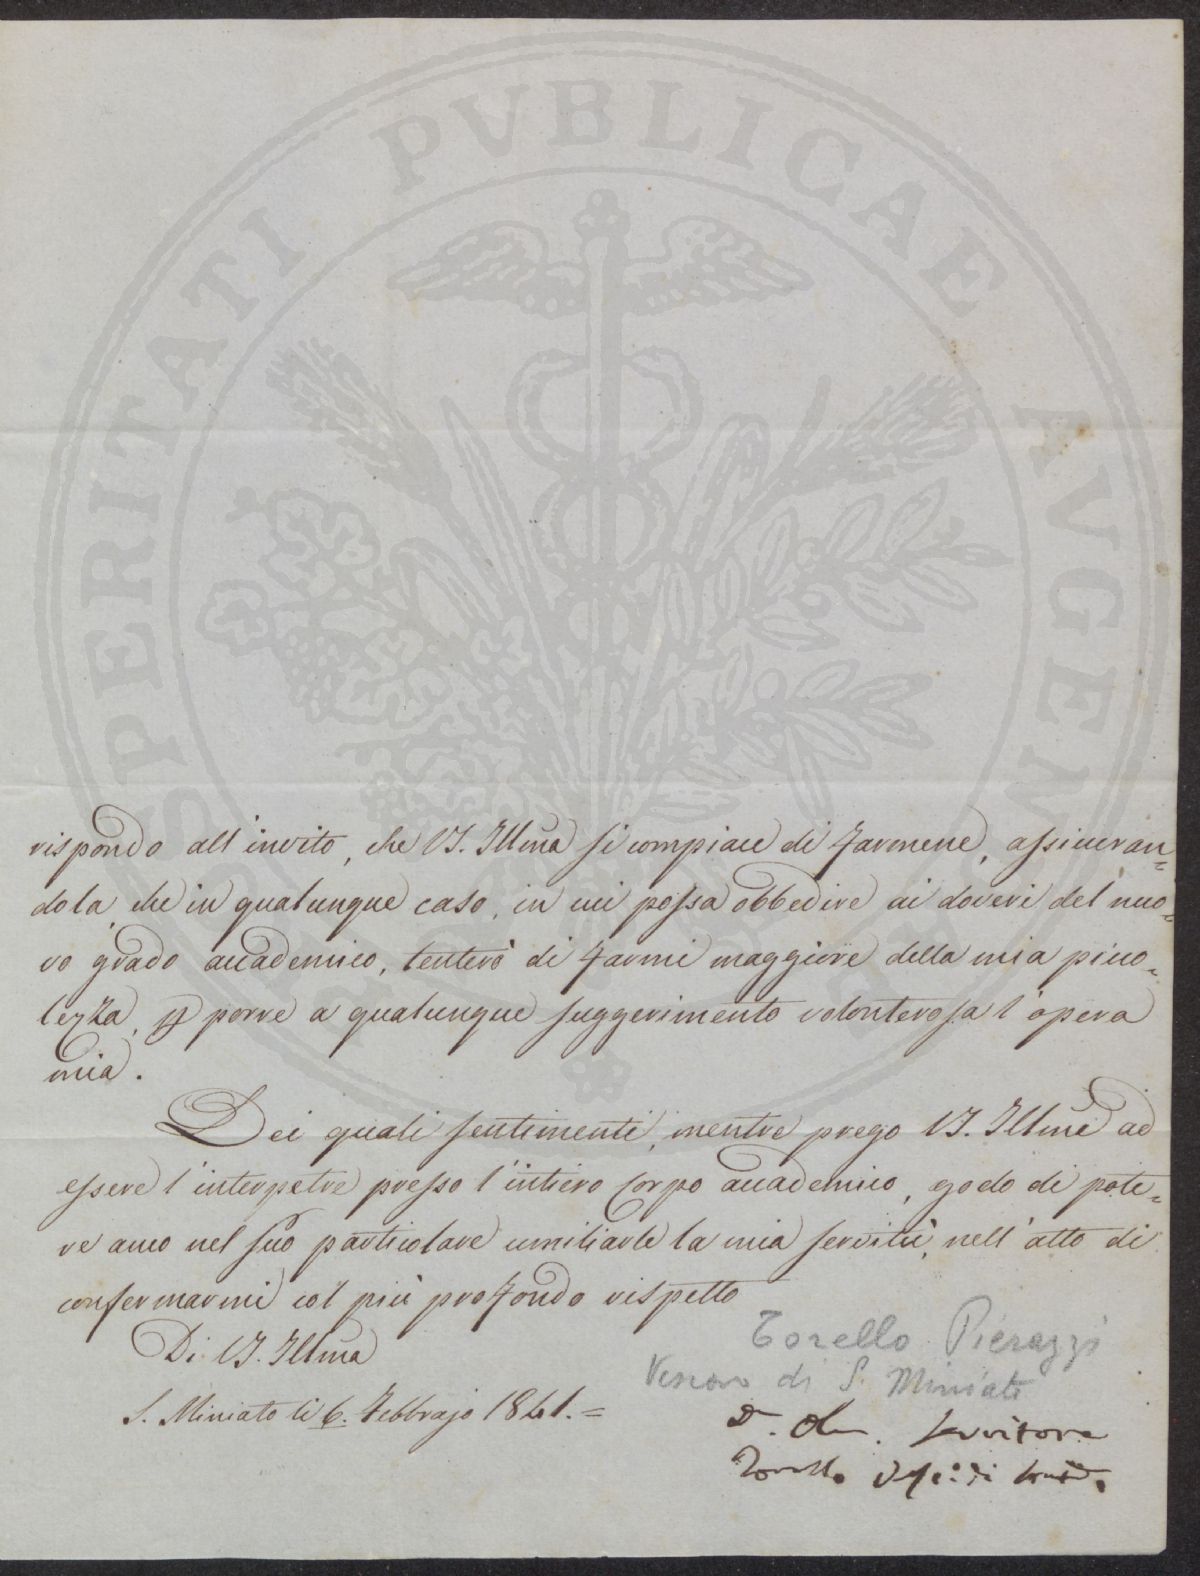 PROSPERITATI PVBLICAE AVGENDAE
rispondo all'invito, che VS. Illma si compiace di farmene, assicuran=
dola, che in qualunque caso, in cui possa obbedire ai doveri del nuo=
vo grado accademico, tenterò di farmi maggiore della mia picco=
lezza, p porre a qualunque suggerimento volonterosa l'opera
mia.
Dei quali sentimenti, mentre prego VS. Illma ad
essere l'interpetre presso l'intiero Corpo accademico, godo di pote=
re anco nel suo particolare umiliarle la mia servitù, nell'atto di
confermarmi col più profondo rispetto
Di VS. Illma
Torello Pierazzi
Vescovo di S. Miniato
S. Miniato li 6. Febbrajo 1841.=
D. Servitore
Torello V. di